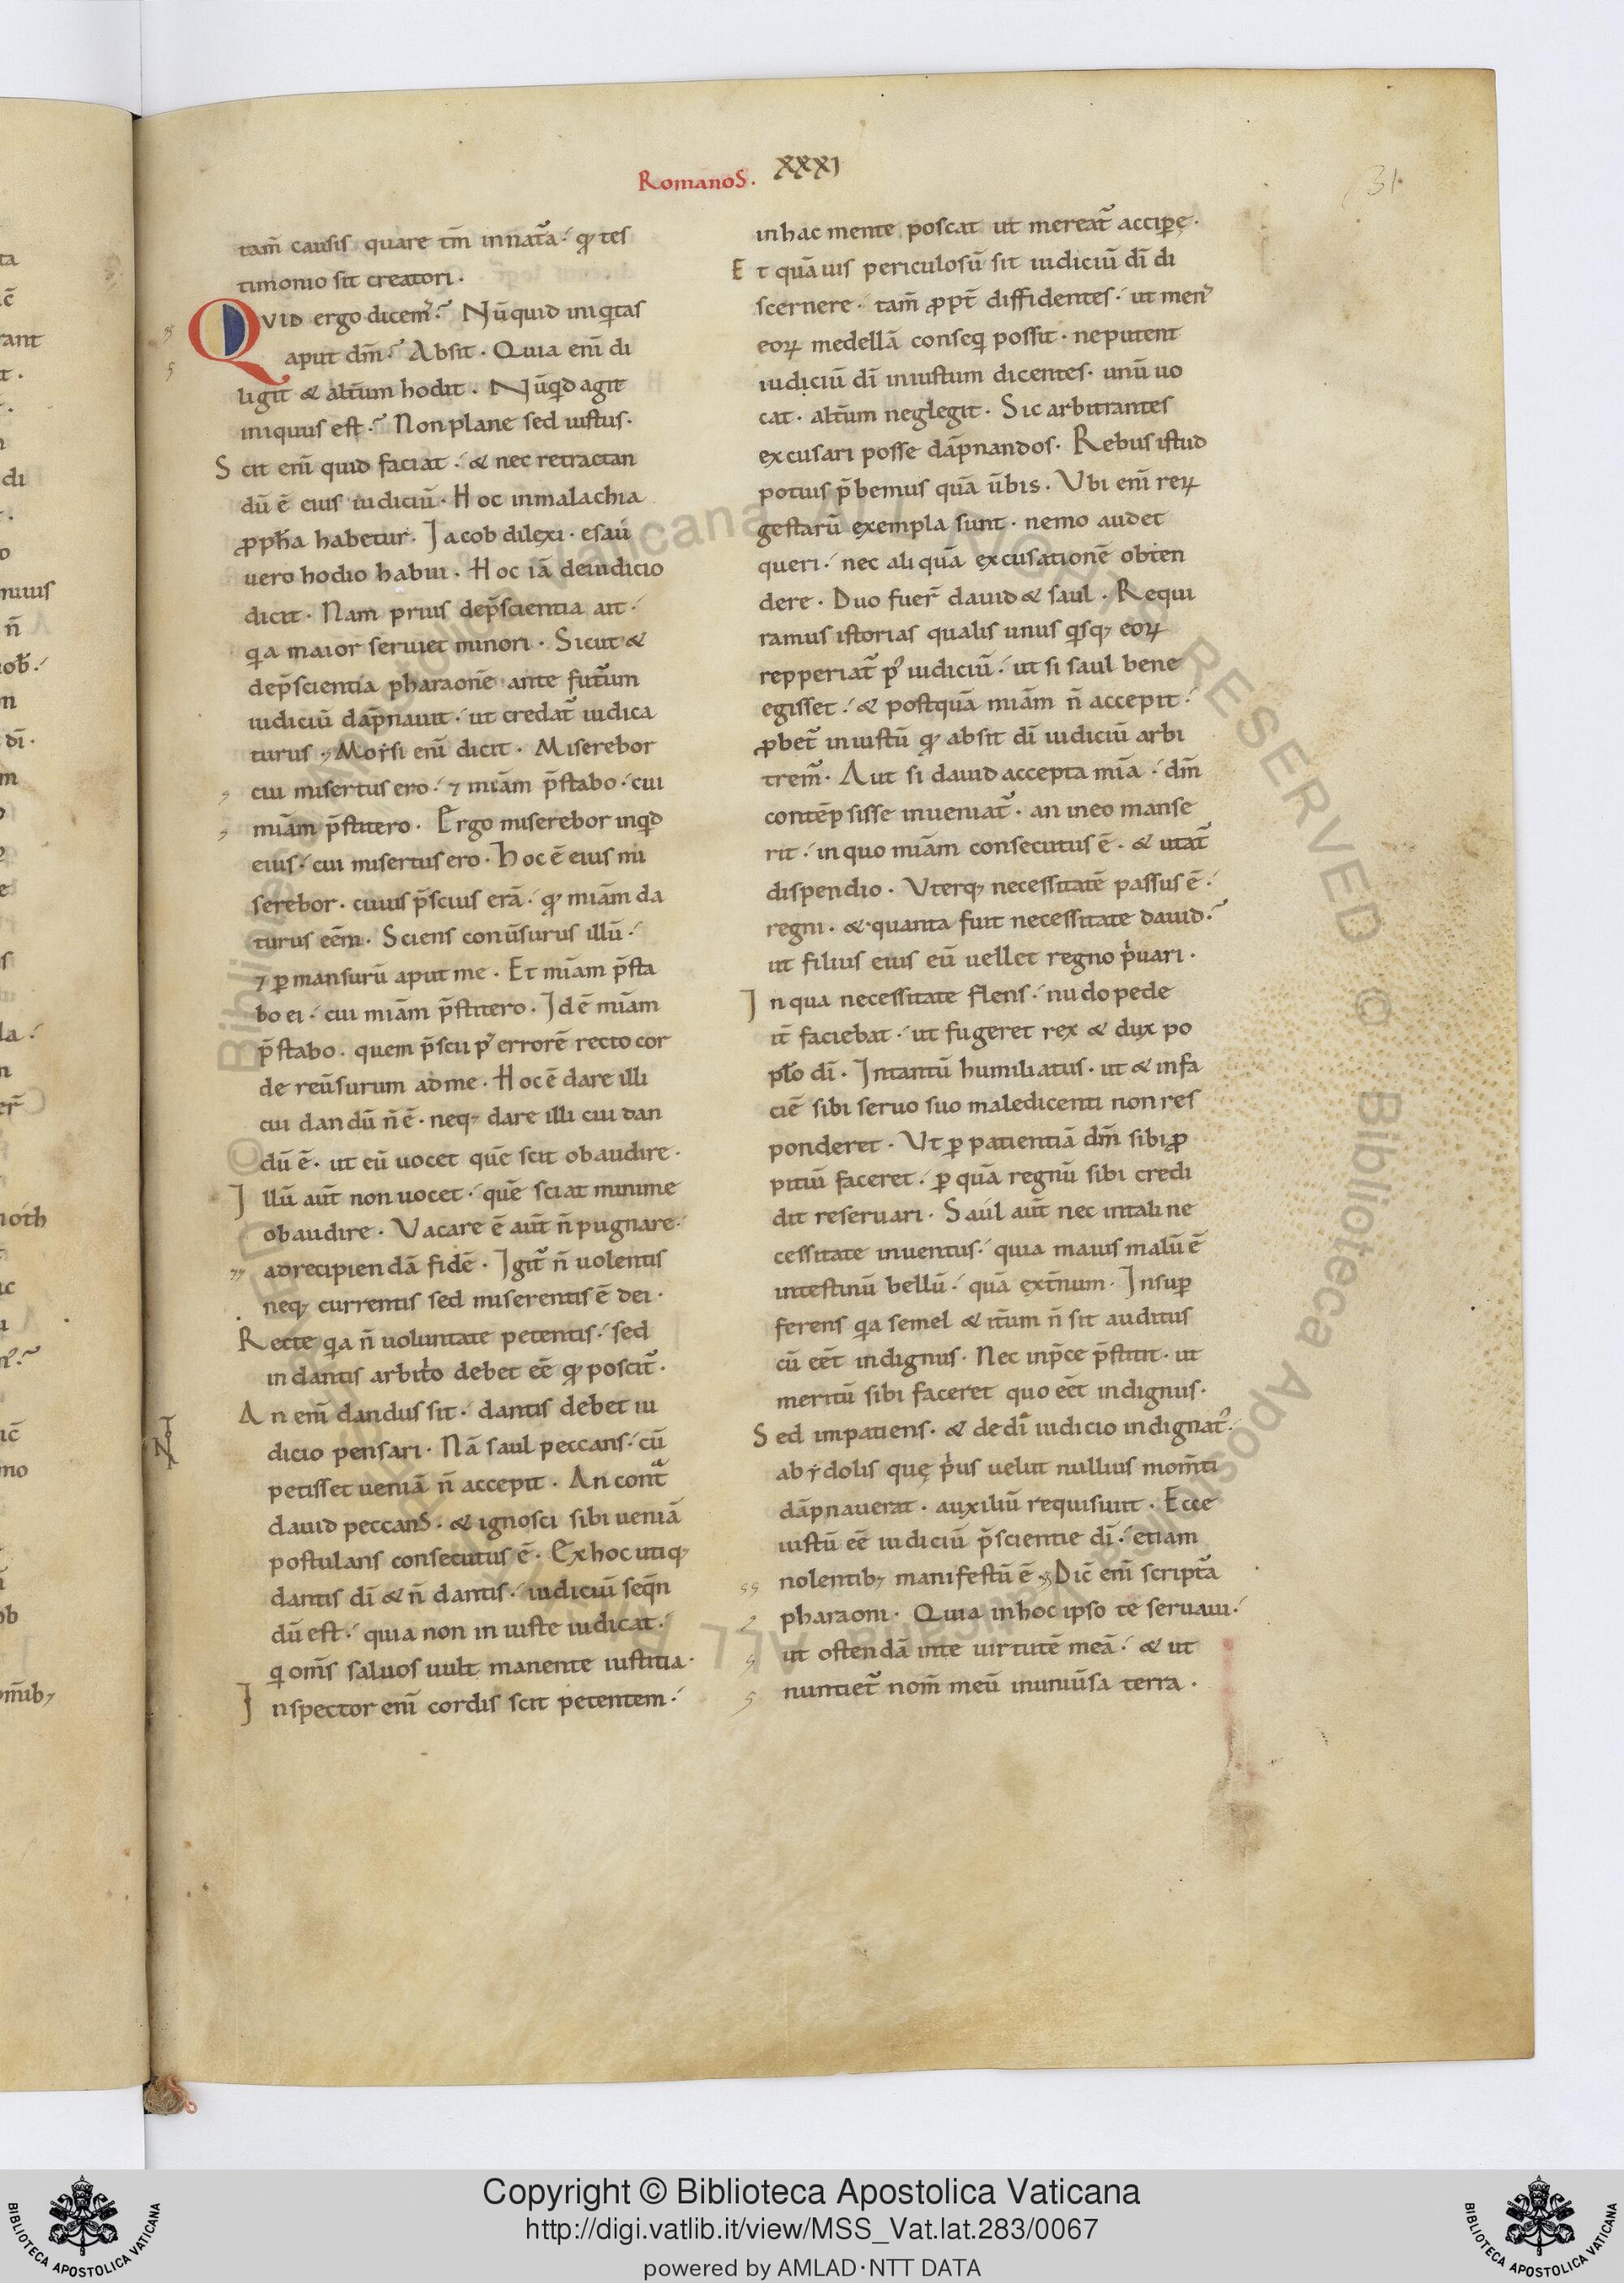 RomanoS. XXXI
31
tam̄ causis quare tm̄ innat̃a· qđ tes
timonio sit creatori.
QVID ergo dicem᷒? Nūquid iniq̇tas
aput dm̄? Absit. Quia enī di
ligit & alt̄um hodit. Nūq̇d agit
iniquus est? Non plane sed iustus.
Scit enī quid faciat· & nec retractan
dū ē eius iudiciū. Hoc inmalachia
ꝓph̄a habetur. Jacob dilexi· esaú
uero hodio habui. Hoc iā deiudicio
dicit. Nam prius dep̄scientia ait·
qa maior seruiet minori. Sicut &
dep̄scientia pharaonē ante fut̄um
iudiciū dāpnauit· ut credat᷒ iudica
turus. Moẏsi enī dicit. Miserebor
cui misertus ero· ⁊ miām p̄stabo· cui
miām p̄stitero. Ergo miserebor inq̇d
eius· cui misertus ero. Hoc ē eius mi
serebor· cuius p̄scius erā· qđ miām da
turus eēm. Sciens conūsurus illū·
⁊ ꝑmansurū aput me. Et miām p̄sta
bo ei· cui miām p̄stitero. Jd ē miām
p̄stabo· quem p̄scii p᷒ errorē recto cor
de reūsurum adme. Hoc ē dare illi
cui dandū n̄ ē· neq; dare illi cui dan
dū ē. ut eū uocet quē scit obaudire.
Jllū aūt non uocet· quē sciat minime
obaudire. Vacare ē aūt n̄ pugnare·
adrecipiendā fidē. Jgit᷒ n̄ uolentis
neq; currentis sed miserentis ē dei.
Recte qa n̄ uoluntate petentis· sed
in dantis arbit̓o debet eē qđ poscit᷒.
An enī dandus sit· dantis debet iu
dicio pensari. Nā saul peccans· cū
petisset ueniā n̄ accepit. An contᵃ
dauid peccanS· & ignosci sibi ueniā
postulans consecutus ē. Ex hoc utiq;
dantis dī & n̄ dantis· iudiciū seq̄n
dū est· quia non in iuste iudicat·
q̇ om̄s saluos uult manente iustitia·
Jnspector enī cordis scit petentem·
inhac mente poscat ut mereat᷒ acciꝑę.
Et quāuis periculosū sit iudiciū dī di
scernere· tam̄ ꝓpt̄ diffidentes· ut men᷒
eoꝝ medellā conseq̇ possit· neputent
iudiciū dī iniustum dicentes· unū uo
cat· alt̄um neglegit. Sic arbitrantes
excusari posse dāpnandos. Rebus istud
potius p̄bemus quā ūbis. Vbi enī reꝝ
gestarū exempla sunt· nemo audet
queri· nec aliquā excusationē obten
dere. Duo fuer̄ dauid & saul. Requi
ramus istorias qualis unus q̇sq; eoꝝ
repperiat᷒ p᷒ iudiciū· ut si saul bene
egisset· & postquā miām n̄ accepit·
ꝓbet᷒ iniustū qđ absit dī iudiciū arbi
trem᷒. Aut si dauid accepta mīa· dm̄
contēpsisse inueniat᷒· an ineo manse
rit· in quo miām consecutus ē· & utat᷒
dispendio. Vterq; necessitatē passus ē·
regni· & quanta fuit necessitate dauid?
ut filius eius eū uellet regno p̓uari.
Jn qua necessitate flens· nudo pede
it̄ faciebat· ut fugeret rex & dux po
pło dī. Jntantū humiliatus· ut & infa
ciē sibi seruo suo maledicenti non res
ponderet. Vt ꝑ patientiā dm̄ sibi ꝓ
pitiū faceret· ꝑ quā regnū sibi credi
dit reseruari. Saúl aūt nec intali ne
cessitate inuentus· quia maius malū ē
intestinū bellū· quā ext̄num. Jnsuꝑ
ferens qa semel & it̄um n̄ sit auditus
cū eēt indignus. Nec inp̄ce p̄stitit· ut
meritū sibi faceret quo eēt indignus.
Sed impatiens· & dedī iudicio indignat᷒·
ab ẏdolis quę p̓us uelut nullius mom̄ti
dāpnauerat· auxiliū requisiuit. Ecce
iustū eē iudiciū p̄scientie dī· etiam
nolentib; manifestū ē. Dic̄ enī script᷒a
pharaoni. Quia inhoc ipso te seruaui·
ut ostendā inte uirtutē meā· & ut
nuntiet᷒ nom̄ meū inuniūsa terra.
Copyright © Biblioteca Apostolica Vaticana
http://digi.vatlib.it/view/MSS_Vat.lat.283/0067
powered by AMLAD·NTT DATA
BIBLIOTECA APOSTOLICA VATICANA
BIBLIOTECA APOSTOLICA VATICANA